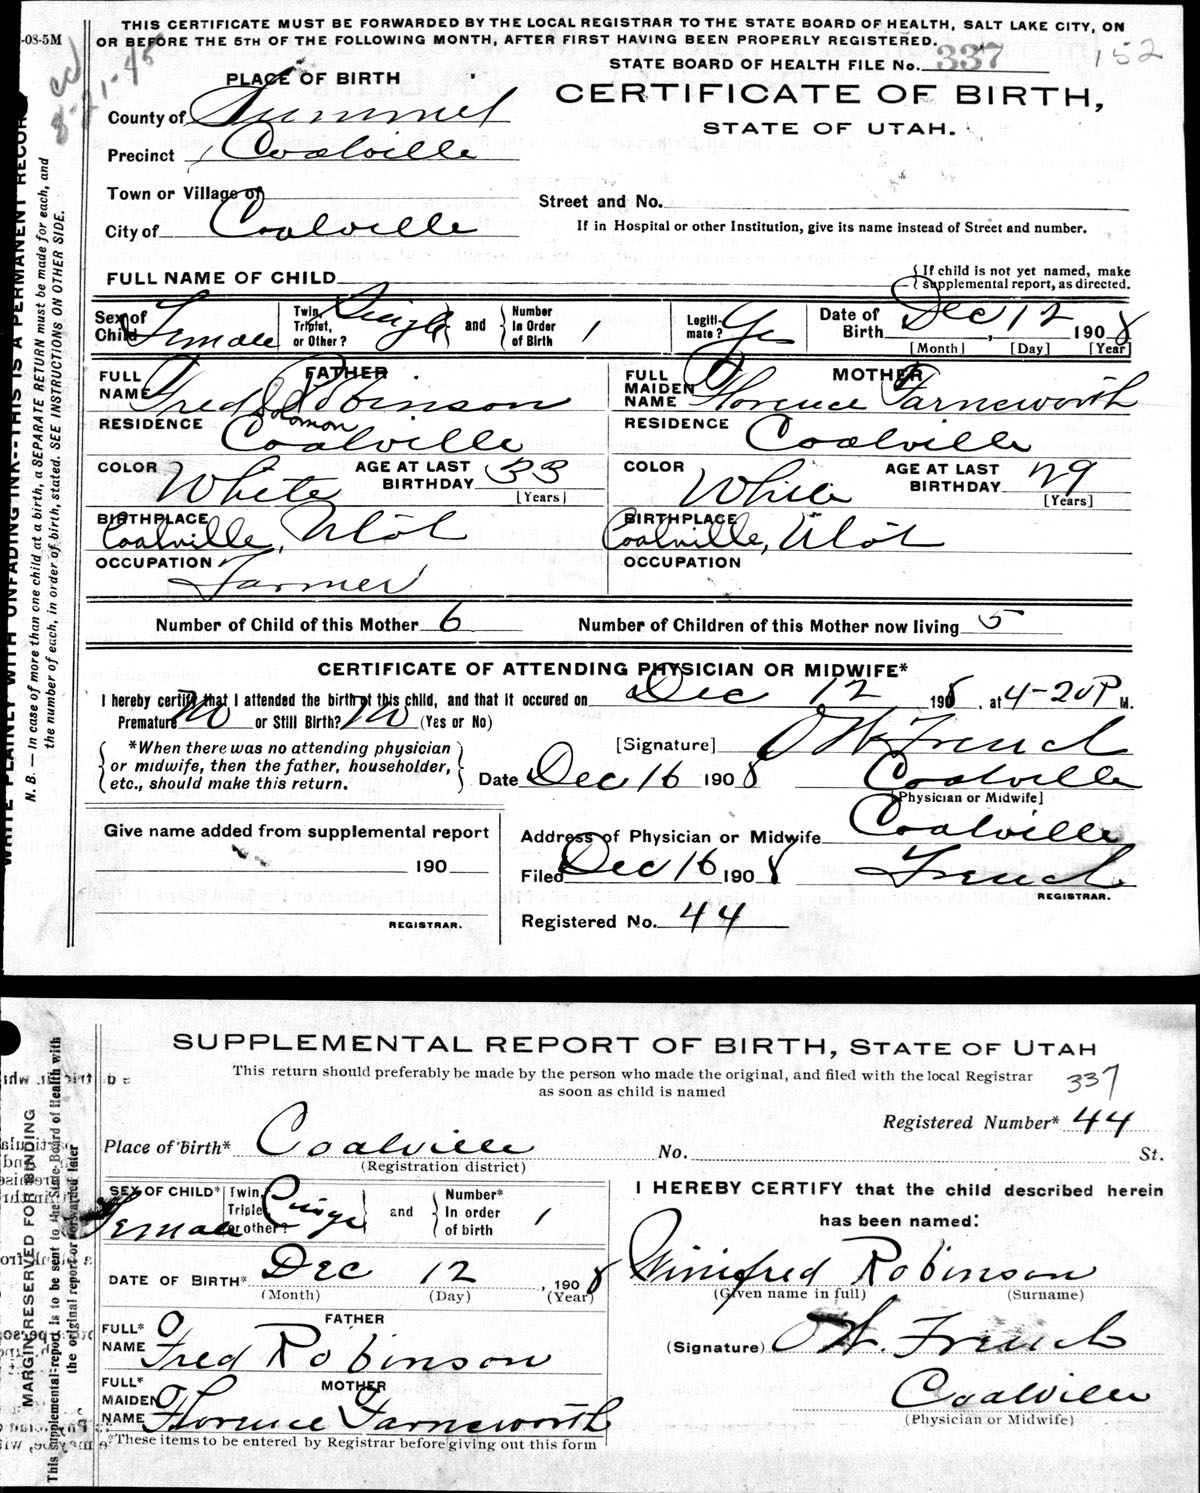 THIS CERTIFICATE MUST BE FORWARDED BY THE LOCAL REGISTRAR TO THE STATE BOARD OF HEALTH, SALT LAKE CITY, ON
OR BEFORE THE 5TH OF THE FOLLOWING MONTH, AFTER FIRST HAVING BEEN PROPERLY REGISTERED.
-08-5M
STATE BOARD OF HEALTH FILE No. 337 152
PLACE OF BIRTH
CERTIFICATE OF BIRTH,
STATE OF UTAH.
County of Summit
Precinct Coalville
Town or Village of
Street and No.
City of Coalville
If in Hospital or other Institution, give its name instead of Street and number.
FULL NAME OF CHILD
{If child is not yet named, make
supplemental report, as directed.
Sex of Child Female
Twin, Triplet, or Other? Single and Number In Order of Birth 1
Legitimate? Yes
Date of Birth Dec 12, 1908
[Month] [Day] [Year]
FATHER
FULL NAME Fred Solomon Robinson
RESIDENCE Coalville
COLOR White AGE AT LAST BIRTHDAY 33 [Years]
BIRTHPLACE Coalville, Utah
OCCUPATION Farmer
MOTHER
FULL MAIDEN NAME Florence Farnsworth
RESIDENCE Coalville
COLOR White AGE AT LAST BIRTHDAY 29 [Years]
BIRTHPLACE Coalville, Utah
OCCUPATION
Number of Child of this Mother 6 Number of Children of this Mother now living 5
CERTIFICATE OF ATTENDING PHYSICIAN OR MIDWIFE*
I hereby certify that I attended the birth of this child, and that it occured on Dec 12 1908, at 4-20 P M.
Premature No or Still Birth? No (Yes or No)
{*When there was no attending physician
or midwife, then the father, householder,
etc., should make this return.}
[Signature] French
Date Dec 16 1908 Coalville
[Physician or Midwife]
Give name added from supplemental report
190
REGISTRAR.
Address of Physician or Midwife Coalville
Filed Dec 16 1908 French
REGISTRAR.
Registered No. 44
WRITE PLAINLY WITH UNFADING INK--THIS IS A PERMANENT RECORD
N. B. — In case of more than one child at a birth, a SEPARATE RETURN must be made for each, and
the number of each, in order of birth, stated. SEE INSTRUCTIONS ON OTHER SIDE.
SUPPLEMENTAL REPORT OF BIRTH, STATE OF UTAH
This return should preferably be made by the person who made the original, and filed with the local Registrar
as soon as child is named
337
Registered Number* 44
Place of birth* Coalville No. St.
(Registration district)
SEX OF CHILD* Female
Twin, Triplet, or other? Single and Number* In order of birth 1
DATE OF BIRTH* Dec 12, 1908
(Month) (Day) (Year)
FATHER
FULL* NAME Fred Robinson
MOTHER
FULL* MAIDEN NAME Florence Farnsworth
*These items to be entered by Registrar before giving out this form
I HEREBY CERTIFY that the child described herein
has been named:
Winifred Robinson
(Given name in full) (Surname)
(Signature) French
Coalville
(Physician or Midwife)
MARGIN RESERVED FOR BINDING
This supplemental report is to be sent to the State Board of Health with
the original report or forwarded later